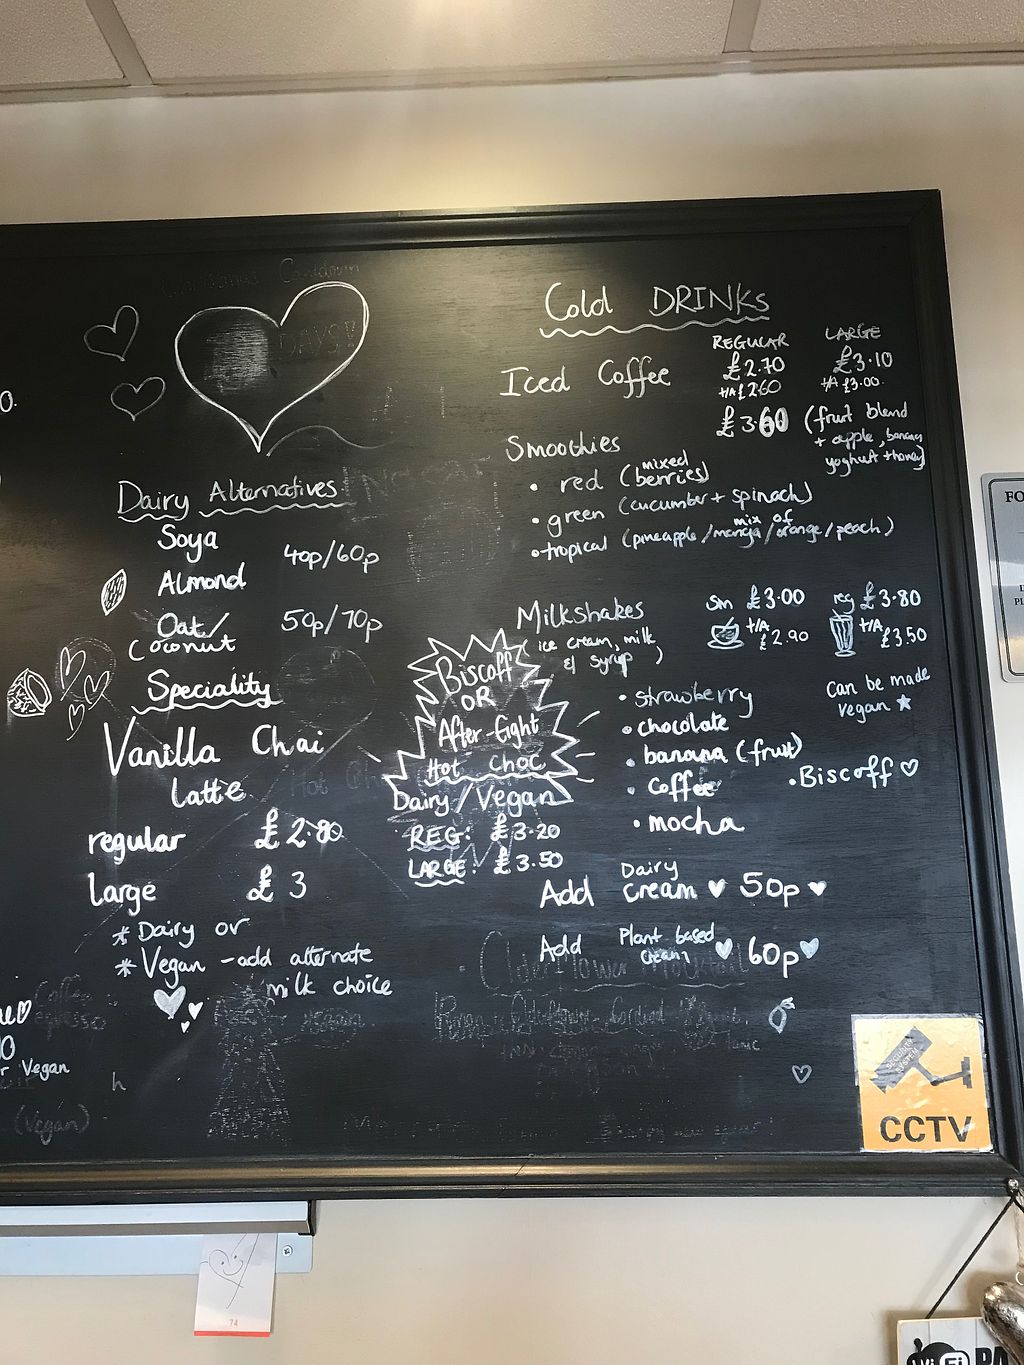 Countdown
DAYS!!
Dairy Alternatives
Soya
40p/60p
Almond
Oat/
Coconut
50p/70p
Speciality
Vanilla Chai
Latte
regular £2.80
large £3
* Dairy or
* Vegan - add alternate
milk choice
Biscoff
OR
After-Eight
Hot Choc
Dairy/Vegan
REG: £3.20
LARGE: £3.50
Cold DRINKS
REGULAR LARGE
Iced Coffee £2.70 £3.10
T/A £2.60 T/A £3.00
Smoothies £3.60 (fruit blend
+ apple, banana
yoghurt + honey)
• red (mixed
berries)
• green (cucumber + spinach)
• tropical (mix of
pineapple/mango/orange/peach)
Milkshakes sm £3.00 reg £3.80
T/A £2.90 T/A £3.50
(ice cream, milk
& syrup)
can be made
vegan
• strawberry
• chocolate
• banana (fruit)
• coffee
• Biscoff
• mocha
Add Dairy
cream 50p
Add Plant based
cream 60p
Elderflower Mocktail
Coffee
espresso
r Vegan
(Vegan)
h
SECURITY
SYSTEM
CCTV
74
FO
WiFi